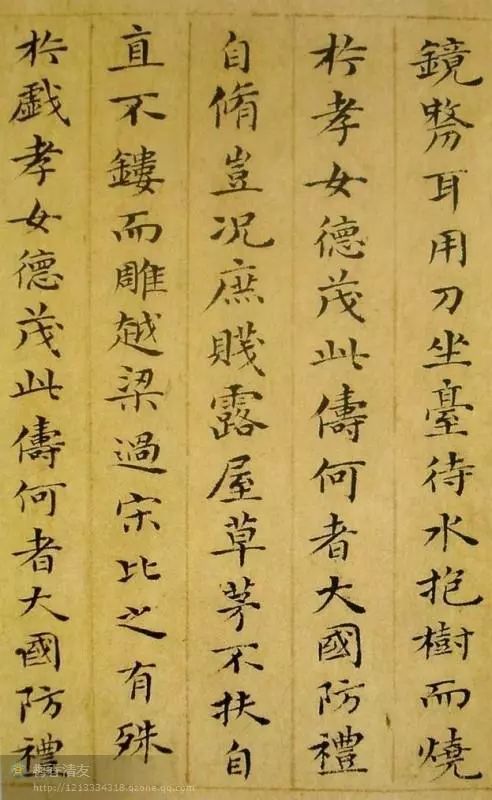 鏡剺耳用刀坐臺待水抱樹而燒
扵孝女德茂此儔何者大國防禮
自脩豈況庶賤露屋草茅不扶自
直不鏤而雕越梁過宋比之有殊
扵戱孝女德茂此儔何者大國防禮
清友
http://1213334318.qzone.qq.com